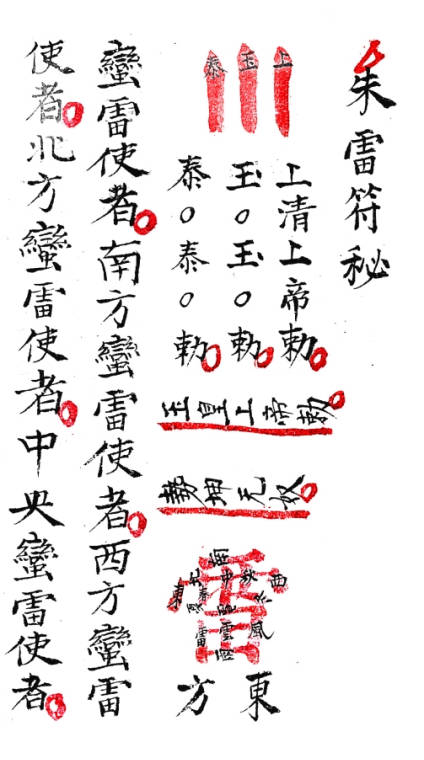 朱雷符秘
上 玉 泰
上清上帝勅
玉○玉○勅
泰○泰○勅
玉皇上帝勅
雷
南 中 西
東 北
風 雷 雲 雨
東方
蠻雷使者南方蠻雷使者西方蠻雷
使者北方蠻雷使者中央蠻雷使者